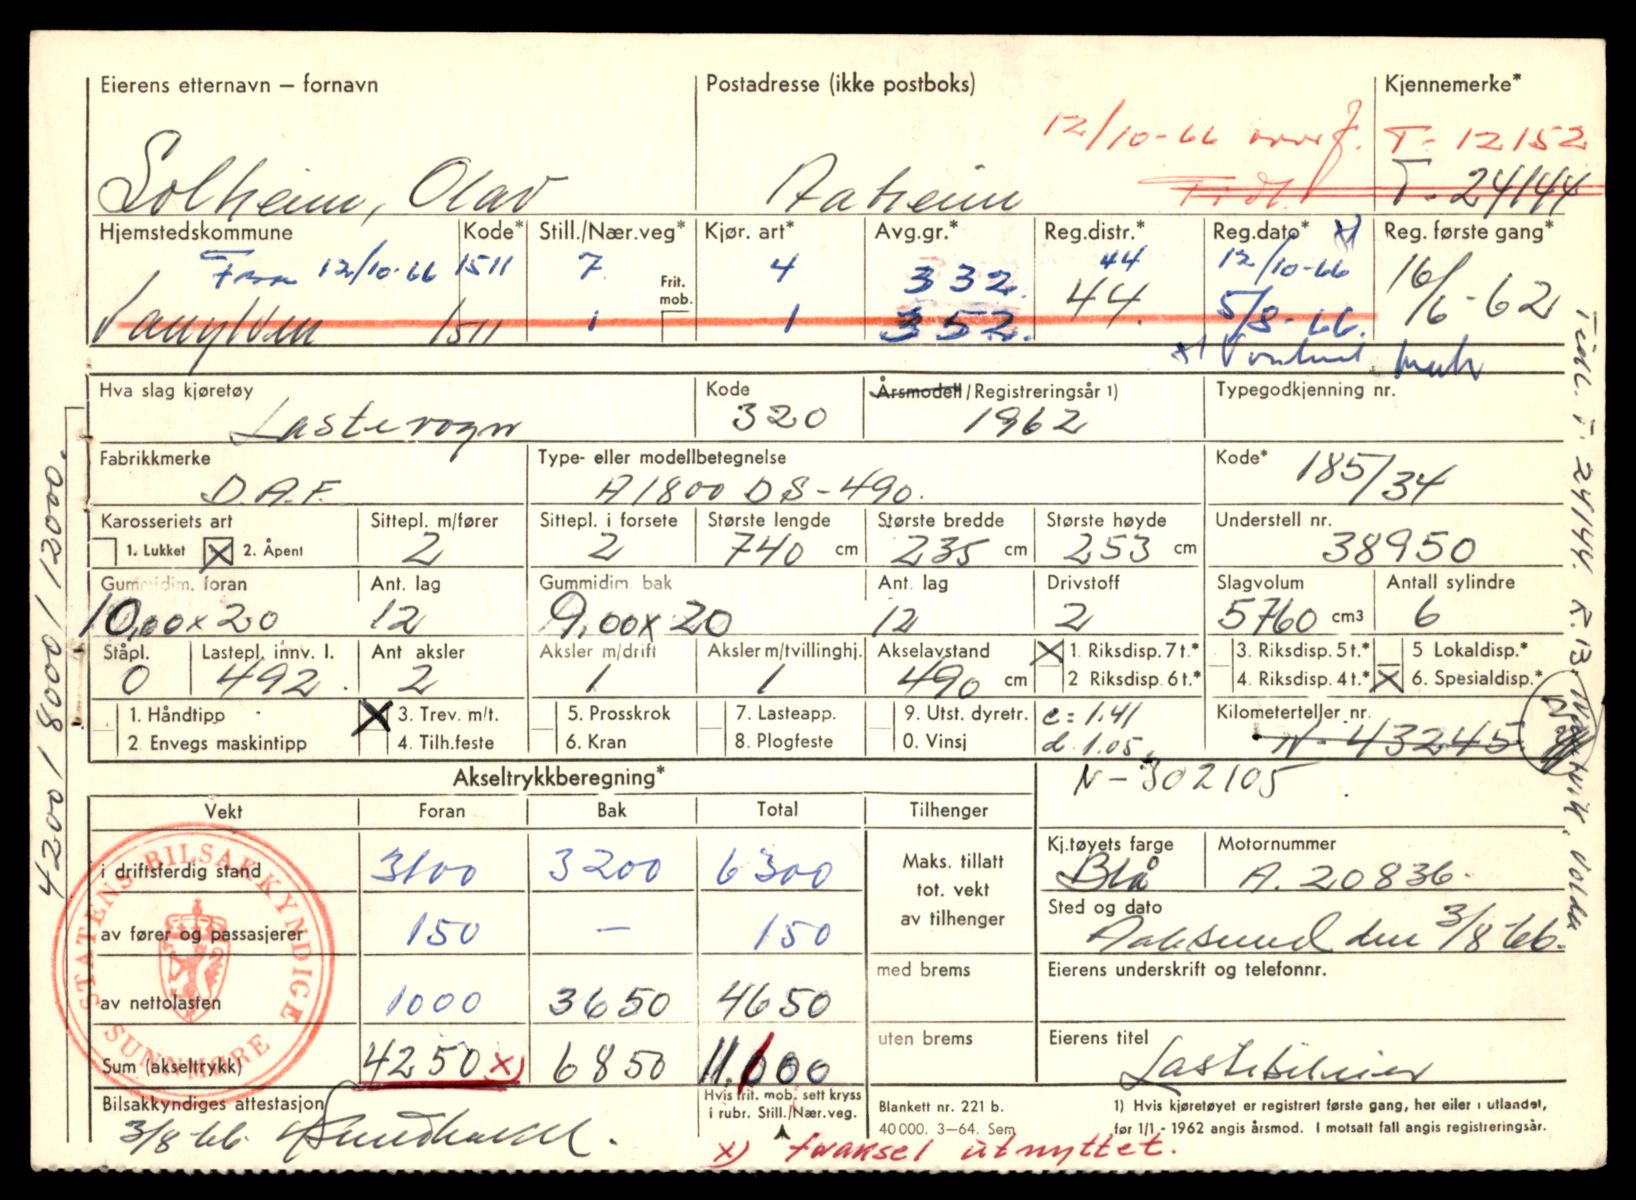 Eierens etternavn – fornavn
Postadresse (ikke postboks)
Kjennemerke*
12/10-66 overf.
T- 12152
Solheim, Olav
Aaheim
T- 24144
Hjemstedskommune
Kode*
Still./Nær.veg*
Kjør. art*
Avg.gr.*
Reg.distr.*
Reg.dato* x)
Reg. første gang*
Fra 12/10-66 1511
7
4
332
44
12/10-66
16/6-62
Frit. mob.
Vanylven
1511
1
1
352.
44.
5/8-66.
x)
Hva slag kjøretøy
Lastevogn
Kode
320
Årsmodell/Registreringsår 1)
1962
Typegodkjenning nr.
Fabrikkmerke
D.A.F.
Type- eller modellbetegnelse
A1800 DS-490.
Kode*
185/34
Karosseriets art
1. Lukket
X 2. Åpent
Sittepl. m/fører
2
Sittepl. i forsete
2
Største lengde
740 cm
Største bredde
235 cm
Største høyde
253 cm
Understell nr.
38950
Gummidim. foran
10,00 x 20
Ant. lag
12
Gummidim. bak
9,00 x 20
Ant. lag
12
Drivstoff
2
Slagvolum
5760 cm3
Antall sylindre
6
Ståpl.
0
Lastepl. innv. l.
492
Ant aksler
2
Aksler m/drift
1
Aksler m/tvillinghj.
1
Akselavstand
490 cm
X 1. Riksdisp. 7 t.*
2 Riksdisp. 6 t.*
3. Riksdisp. 5 t.*
4. Riksdisp. 4 t.*
5 Lokaldisp.*
X 6. Spesialdisp.*
1. Håndtipp
2. Envegs maskintipp
X 3. Trev. m/t.
4. Tilh.feste
5. Prosskrok
6. Kran
7. Lasteapp.
8. Plogfeste
9. Utst. dyretr.
0. Vinsj
c = 1.41
d. 1.05.
Kilometerteller nr.
N- 43245
N-302105
Akseltrykkberegning*
Vekt
Foran
Bak
Total
Tilhenger
i driftsferdig stand
3100
3200
6300
Maks. tillatt
tot. vekt
av tilhenger
Kj.tøyets farge
Blå
Motornummer
A. 20836.
av fører og passasjerer
150
–
150
Sted og dato
3/8-66.
av nettolasten
1000
3650
4650
med brems
Eierens underskrift og telefonnr.
Sum (akseltrykk)
4250 x)
6850
uten brems
Eierens titel
Lastebileier
Bilsakkyndiges attestasjon
3/8-66.
Hvis frit. mob. sett kryss
i rubr. Still./Nær.veg.
Blankett nr. 221 b.
40 000. 3–64. Sem
1) Hvis kjøretøyet er registrert første gang, her eller i utlandet,
før 1/1 - 1962 angis årsmod. I motsatt fall angis registreringsår.
x) framsel utnyttet.
STATENS BILSAKKYNDIGE
SUNNMØRE
4200 / 8000 / 12000.
T. 24144. R. 13. Volda